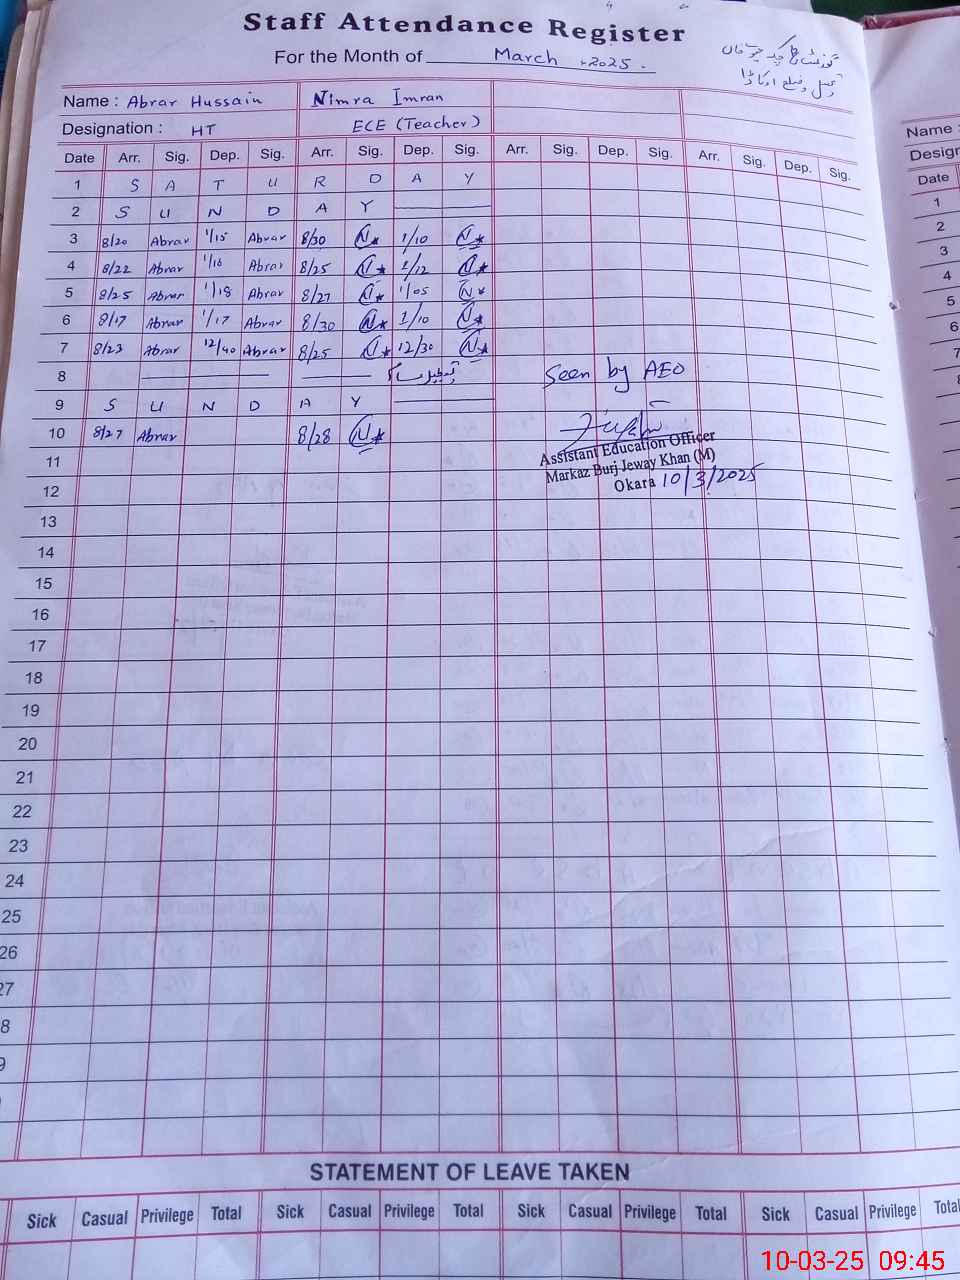 Staff Attendance Register
For the Month of March 2025.
Name : Abrar Hussain Nimra Imran
Designation : HT ECE (Teacher)
Date Arr. Sig. Dep. Sig. Arr. Sig. Dep. Sig. Arr. Sig. Dep. Sig. Arr. Sig. Dep. Sig.
1 S A T U R D A Y
2 S U N D A Y
3 8/20 Abrar 1/15 Abrar 8/30 N 1/10 N
4 8/22 Abrar 1/16 Abrar 8/25 N 1/12 N
5 8/25 Abrar 1/18 Abrar 8/27 N 1/05 N
6 8/17 Abrar 1/17 Abrar 8/30 N 1/10 N
7 8/23 Abrar 12/40 Abrar 8/25 N 12/30 N
8
Seen by AEO
9 S U N D A Y
10 8/27 Abrar 8/28 N
Assistant Education Officer
Markaz Burj Jeway Khan (M)
Okara 10/3/2025
11
12
13
14
15
16
17
18
19
20
21
22
23
24
25
26
27
8
9
STATEMENT OF LEAVE TAKEN
Sick Casual Privilege Total Sick Casual Privilege Total Sick Casual Privilege Total Sick Casual Privilege Total
Name :
Design
Date
1
2
3
4
5
6
7
8
10-03-25 09:45